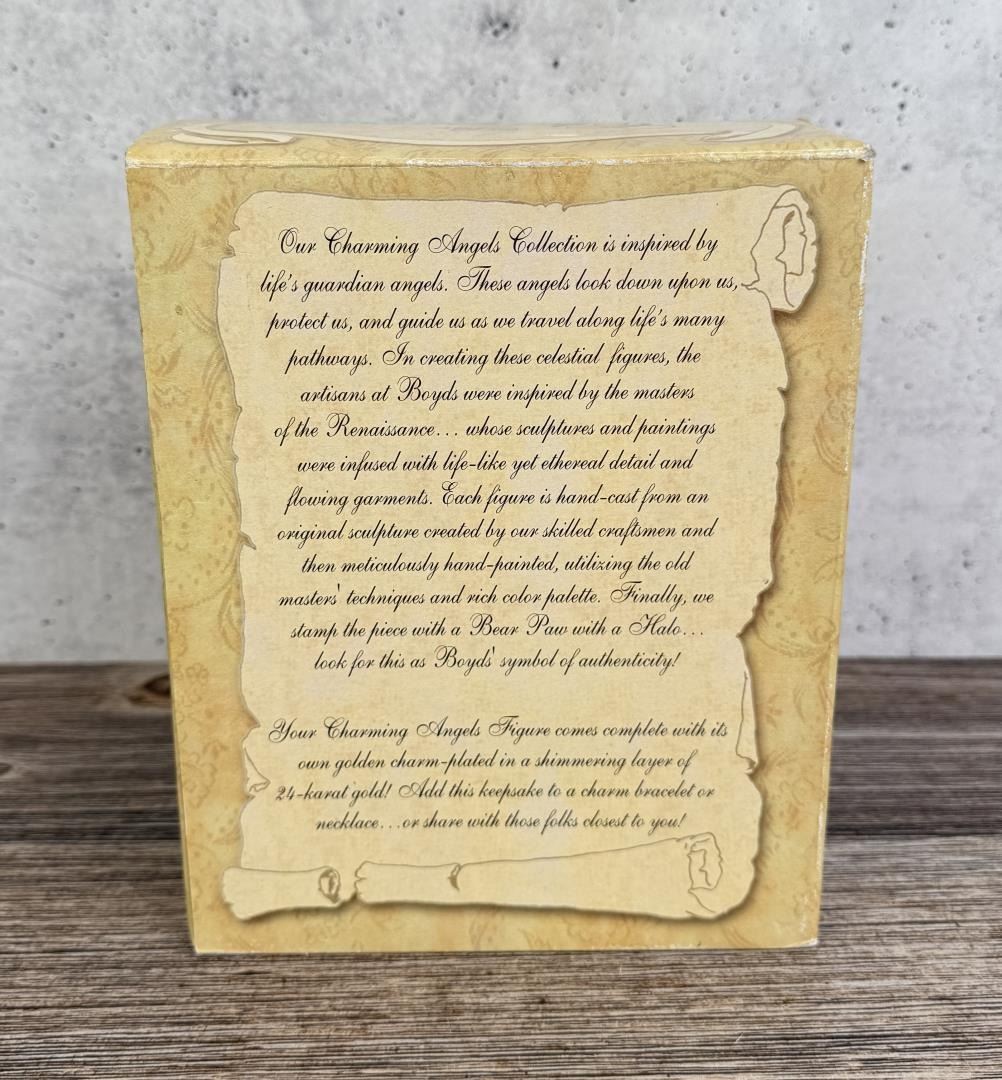 Our Charming Angels Collection is inspired by
life's guardian angels. These angels look down upon us,
protect us, and guide us as we travel along life's many
pathways. In creating these celestial figures, the
artisans at Boyds were inspired by the masters
of the Renaissance... whose sculptures and paintings
were infused with life-like yet ethereal detail and
flowing garments. Each figure is hand-cast from an
original sculpture created by our skilled craftsmen and
then meticulously hand-painted, utilizing the old
masters' techniques and rich color palette. Finally, we
stamp the piece with a Bear Paw with a Halo...
look for this as Boyds' symbol of authenticity!
Your Charming Angels Figure comes complete with its
own golden charm-plated in a shimmering layer of
24-karat gold! Add this keepsake to a charm bracelet or
necklace...or share with those folks closest to you!